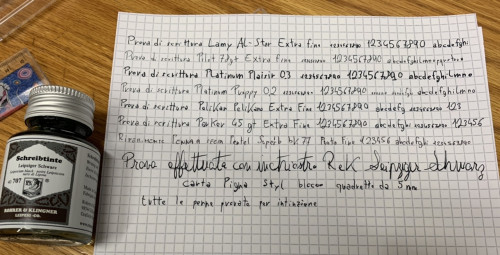 Prova di scrittura Lamy AL-Star Extra fine 1234567890 1234567890 abcdefghi
Prova di scrittura Pilot 78gt Extra fine 1234567890 1234567890
Prova di scrittura Platinum Plaisir 03 1234567890 1234567890 abcdefghilmno
Prova di scrittura Platinum Preppy 0,2 1234567890 1234567890 abcdefghilmno
Prova di scrittura Pelikan Pelikano Extra Fine 1234567890 abcdefg 1234567890 123
Prova di scrittura Parker 45 gt Extra Fine 1234567890 abcdefg 1234567890 123456
Pentel Superb bk77 Punta fine 123456 abcdefg 1234567890
Prova effettuata con inchiostro R&K Leipziger Schwarz
carta Pigna Styl blocco quadretto da 5 mm
tutte le penne provate per intinzione
Schreibtinte
Leipziger Schwarz
1787
ROHRER & KLINGNER
LEIPZIG-CO.